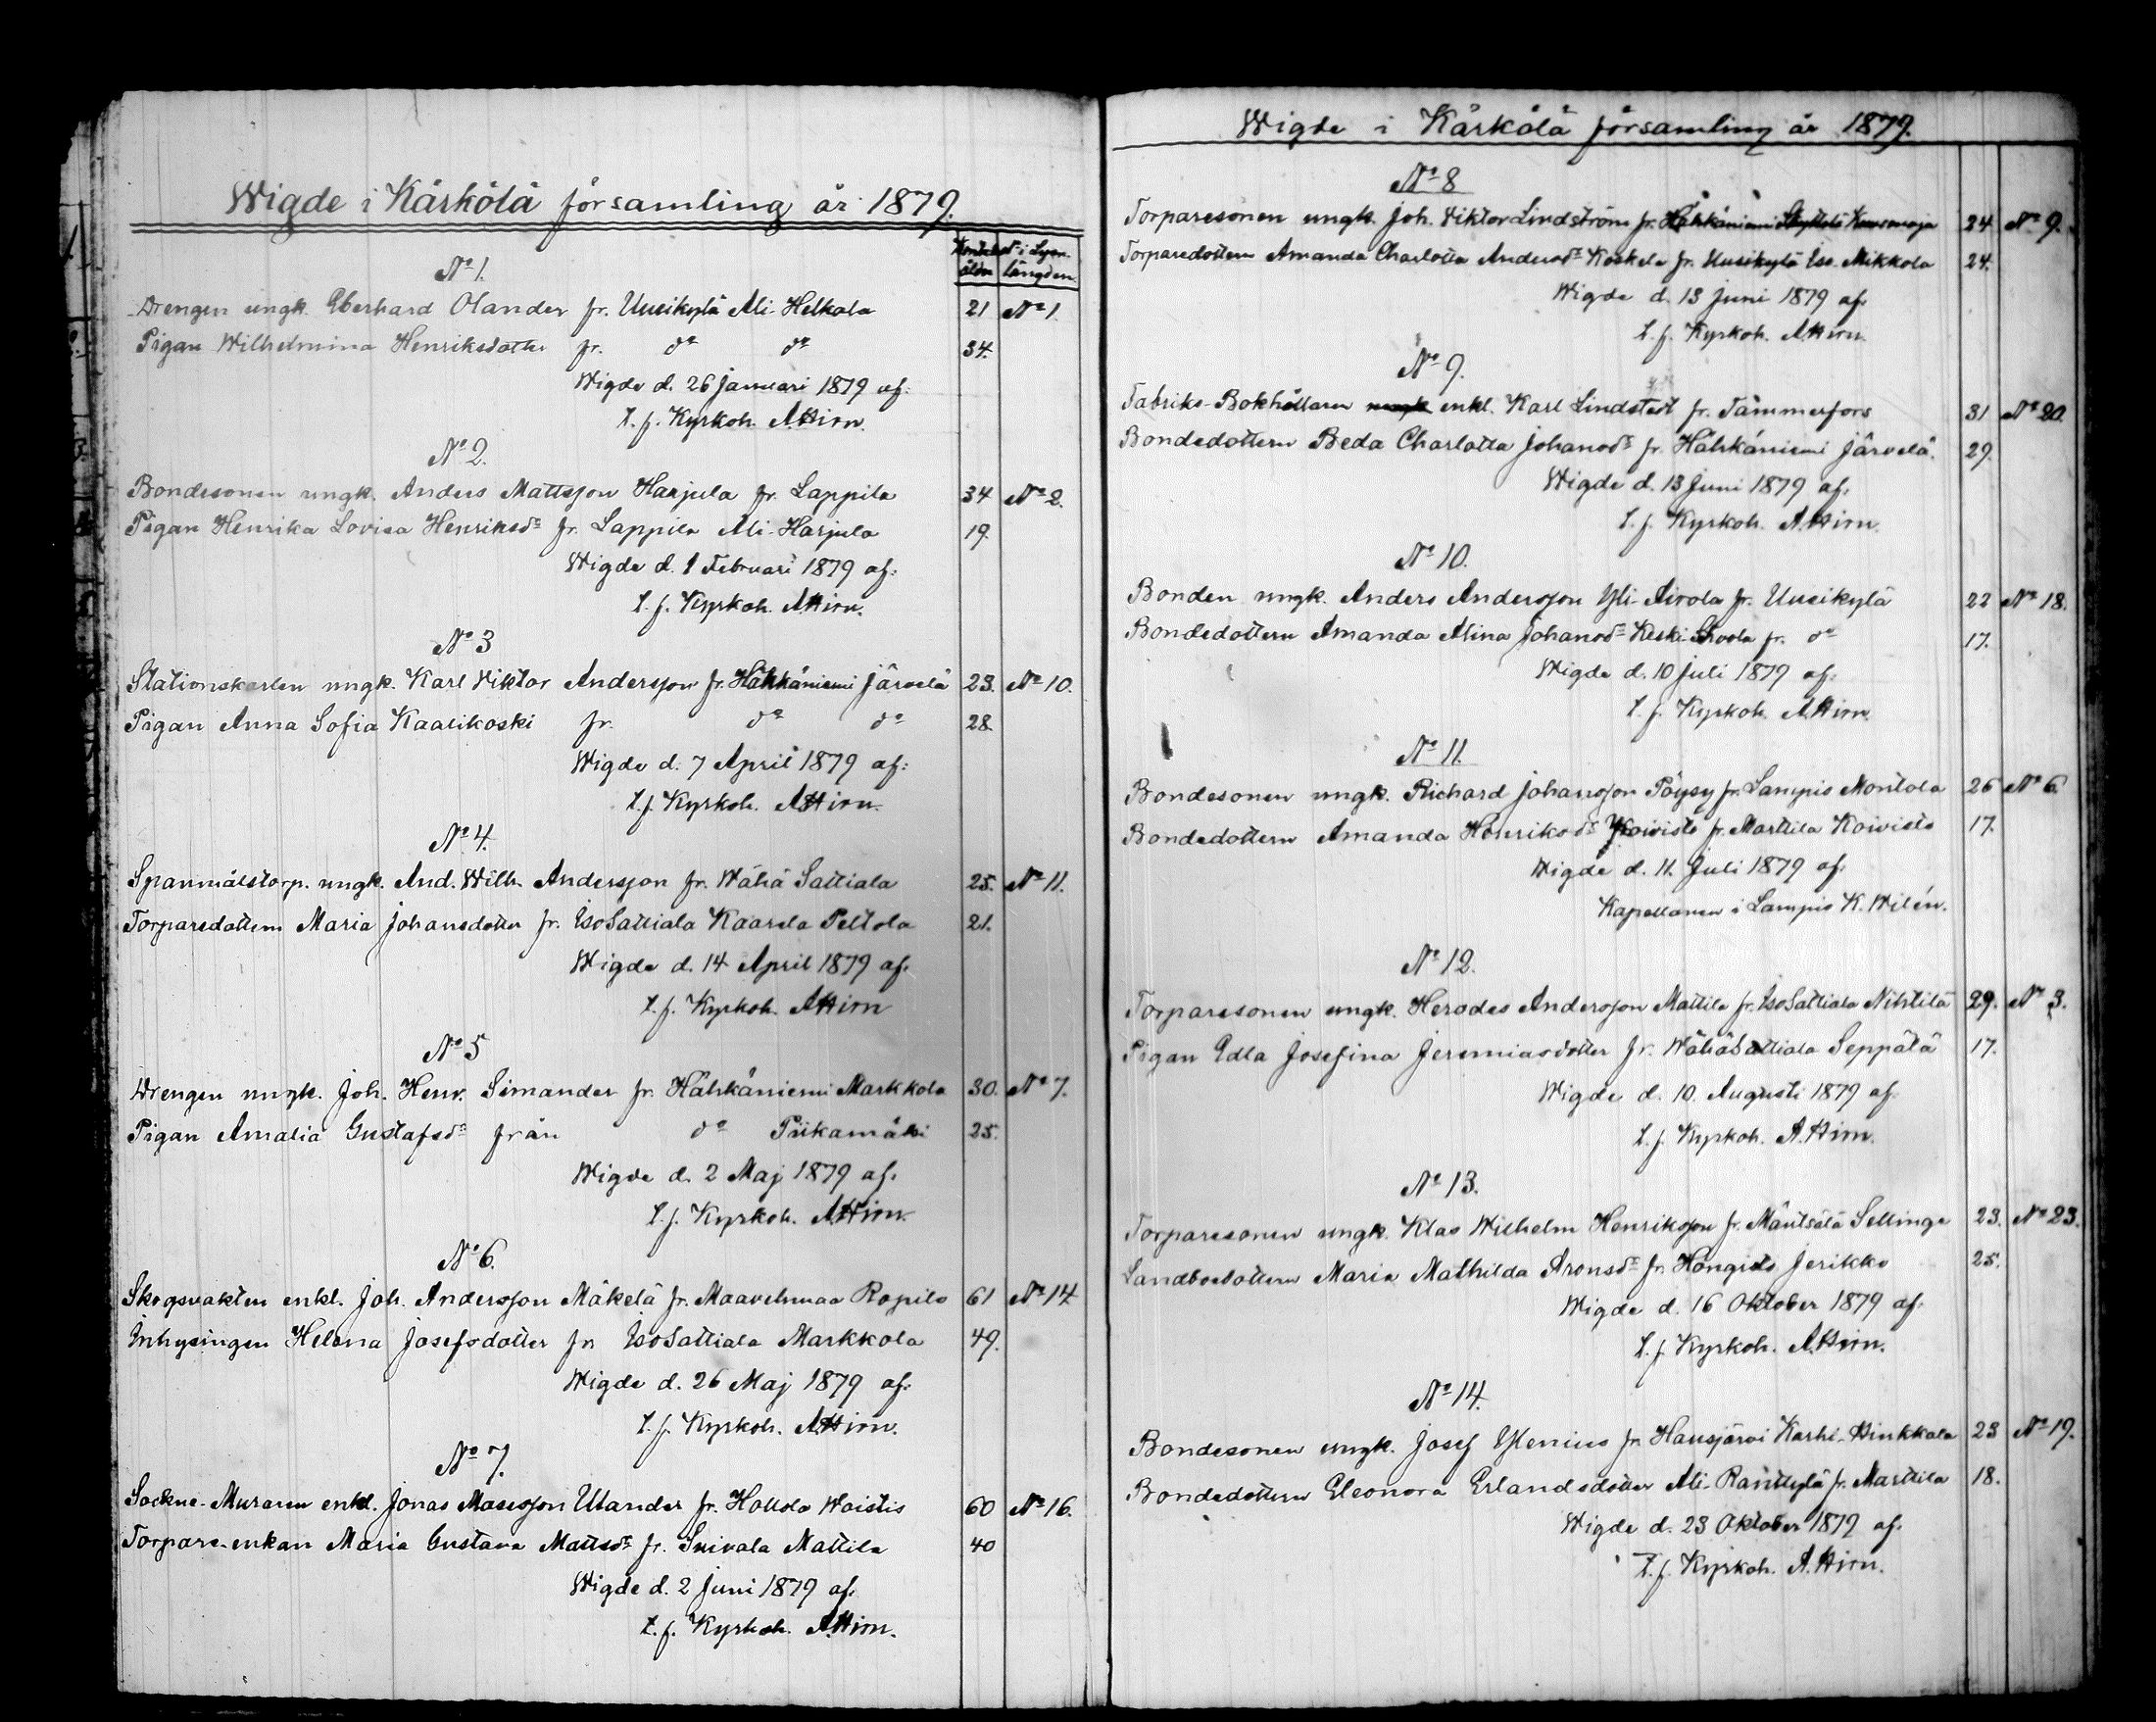 Wigde i Kärkölä församling år 1879.
ålder längden
No 1.
Drengen ungk. Eberhard Olander fr. Uusikylä Ali-Helkala 21 No 1.
Pigan Wilhelmina Henriksdotter fr. do do 34.
Wigde d. 26 Januari 1879 af:
t. f. Kyrkoh. A.Hirn.
No 2.
Bondesonen ungk. Anders Mattsson Harjula fr. Lappila 34 No 2.
Pigan Henrika Lovisa Henriksdr fr. Lappila Ali-Harjula 19.
Wigde d. 1 Februari 1879 af:
t. f. Kyrkoh. A.Hirn.
No 3
Stationskarlen ungk. Karl Viktor Andersson fr. Hähkäniemi Järvelä 23. No 10.
Pigan Anna Sofia Kaarikoski fr. do do 28.
Wigde d. 7 April 1879 af:
t. f. Kyrkoh. A.Hirn.
No 4.
Spanmålstorp. ungk. And. Wilh. Andersson fr. Wähä Sattiala 25. No 11.
Torparedottern Maria Johansdotter fr. IsoSattiala Kaarela Peltola 21.
Wigde d. 14 April 1879 af:
t. f. Kyrkoh. A.Hirn
No 5
Drengen ungk. Joh. Henr. Simander fr. Hähkäniemi Markkola 30. No 7.
Pigan Amalia Gustafsdr från do Piikamäki 25.
Wigde d. 2 Maj 1879 af:
t. f. Kyrkoh. A.Hirn.
No 6.
Skogsvakten enkl. Joh. Andersson Mäkelä fr. Maavehmaa Ropilo 61 No 14
Inhysingen Helena Josefsdotter fr. IsoSattiala Markkola 49.
Wigde d. 26 Maj 1879 af:
t. f. Kyrkoh. A.Hirn.
No 7.
Sockne-Muraren enkl. Jonas Masesson Ulander fr. Hollola Woistis 60 No 16.
Torpare-enkan Maria Gustava Mattsdr fr. Mattila 40
Wigde d. 2 Juni 1879 af:
t. f. Kyrkoh. A.Hirn.
Wigde i Kärkölä församling år 1879.
No 8
Torparesonen ungk. Joh. Viktor Lindström fr. Hähkäniemi 24 No 9.
Torparedottern Amanda Charlotta Andersdr Koskela fr. Uusikylä Iso-Mikkola 24.
Wigde d. 13 Juni 1879 af:
t. f. Kyrkoh. A.Hirn.
No 9.
Fabriks-Bokhållaren ungk. enkl. Karl Lindstedt fr. Tammerfors 31 No 20.
Bondedottern Beda Charlotta Johansdr fr. Hähkäniemi Järvelä. 29.
Wigde d. 13 Juni 1879 af:
t. f. Kyrkoh. A.Hirn.
No 10.
Bonden ungk. Anders Andersson Yli-Airola fr. Uusikylä 22 No 18.
Bondedottern Amanda Alina Johansdr Keski fr. do 17.
Wigde d. 10 Juli 1879 af:
t. f. Kyrkoh. A.Hirn.
No 11.
Bondesonen ungk. Richard Johansson Pöysy fr. Lampis Montola 26 No 6.
Bondedottern Amanda Henriksdr Koivisto fr. Marttila Koivisto 17.
Wigde d. 11. Juli 1879 af:
Kapellanen i Lampis K. Wilén.
No 12.
Torparesonen ungk. Herodes Andersson Mattila fr. IsoSattiala Nihtilä 29. No 3.
Pigan Edla Josefina Jeremiasdotter fr. WähäSattiala Seppälä 17.
Wigde d. 10. Augusti 1879 af:
t. f. Kyrkoh. A.Hirn.
No 13.
Torparesonen ungk. Klas Wilhelm Henriksson fr. Mäntsälä Sellinge 23. No 23.
Landbodottern Maria Mathilda Aronsdr fr. Hongisto Jerikko 25.
Wigde d. 16 Oktober 1879 af:
t. f. Kyrkoh. A.Hirn.
No 14.
Bondesonen ungk. Josef Ylenius fr. Hausjärvi Karhi-Hinkkala 23 No 19.
Bondedottern Eleonora Erlandsdotter Ali-Ränttylä fr. Marttila 18.
Wigde d. 23 Oktober 1879 af:
t. f. Kyrkoh. A.Hirn.